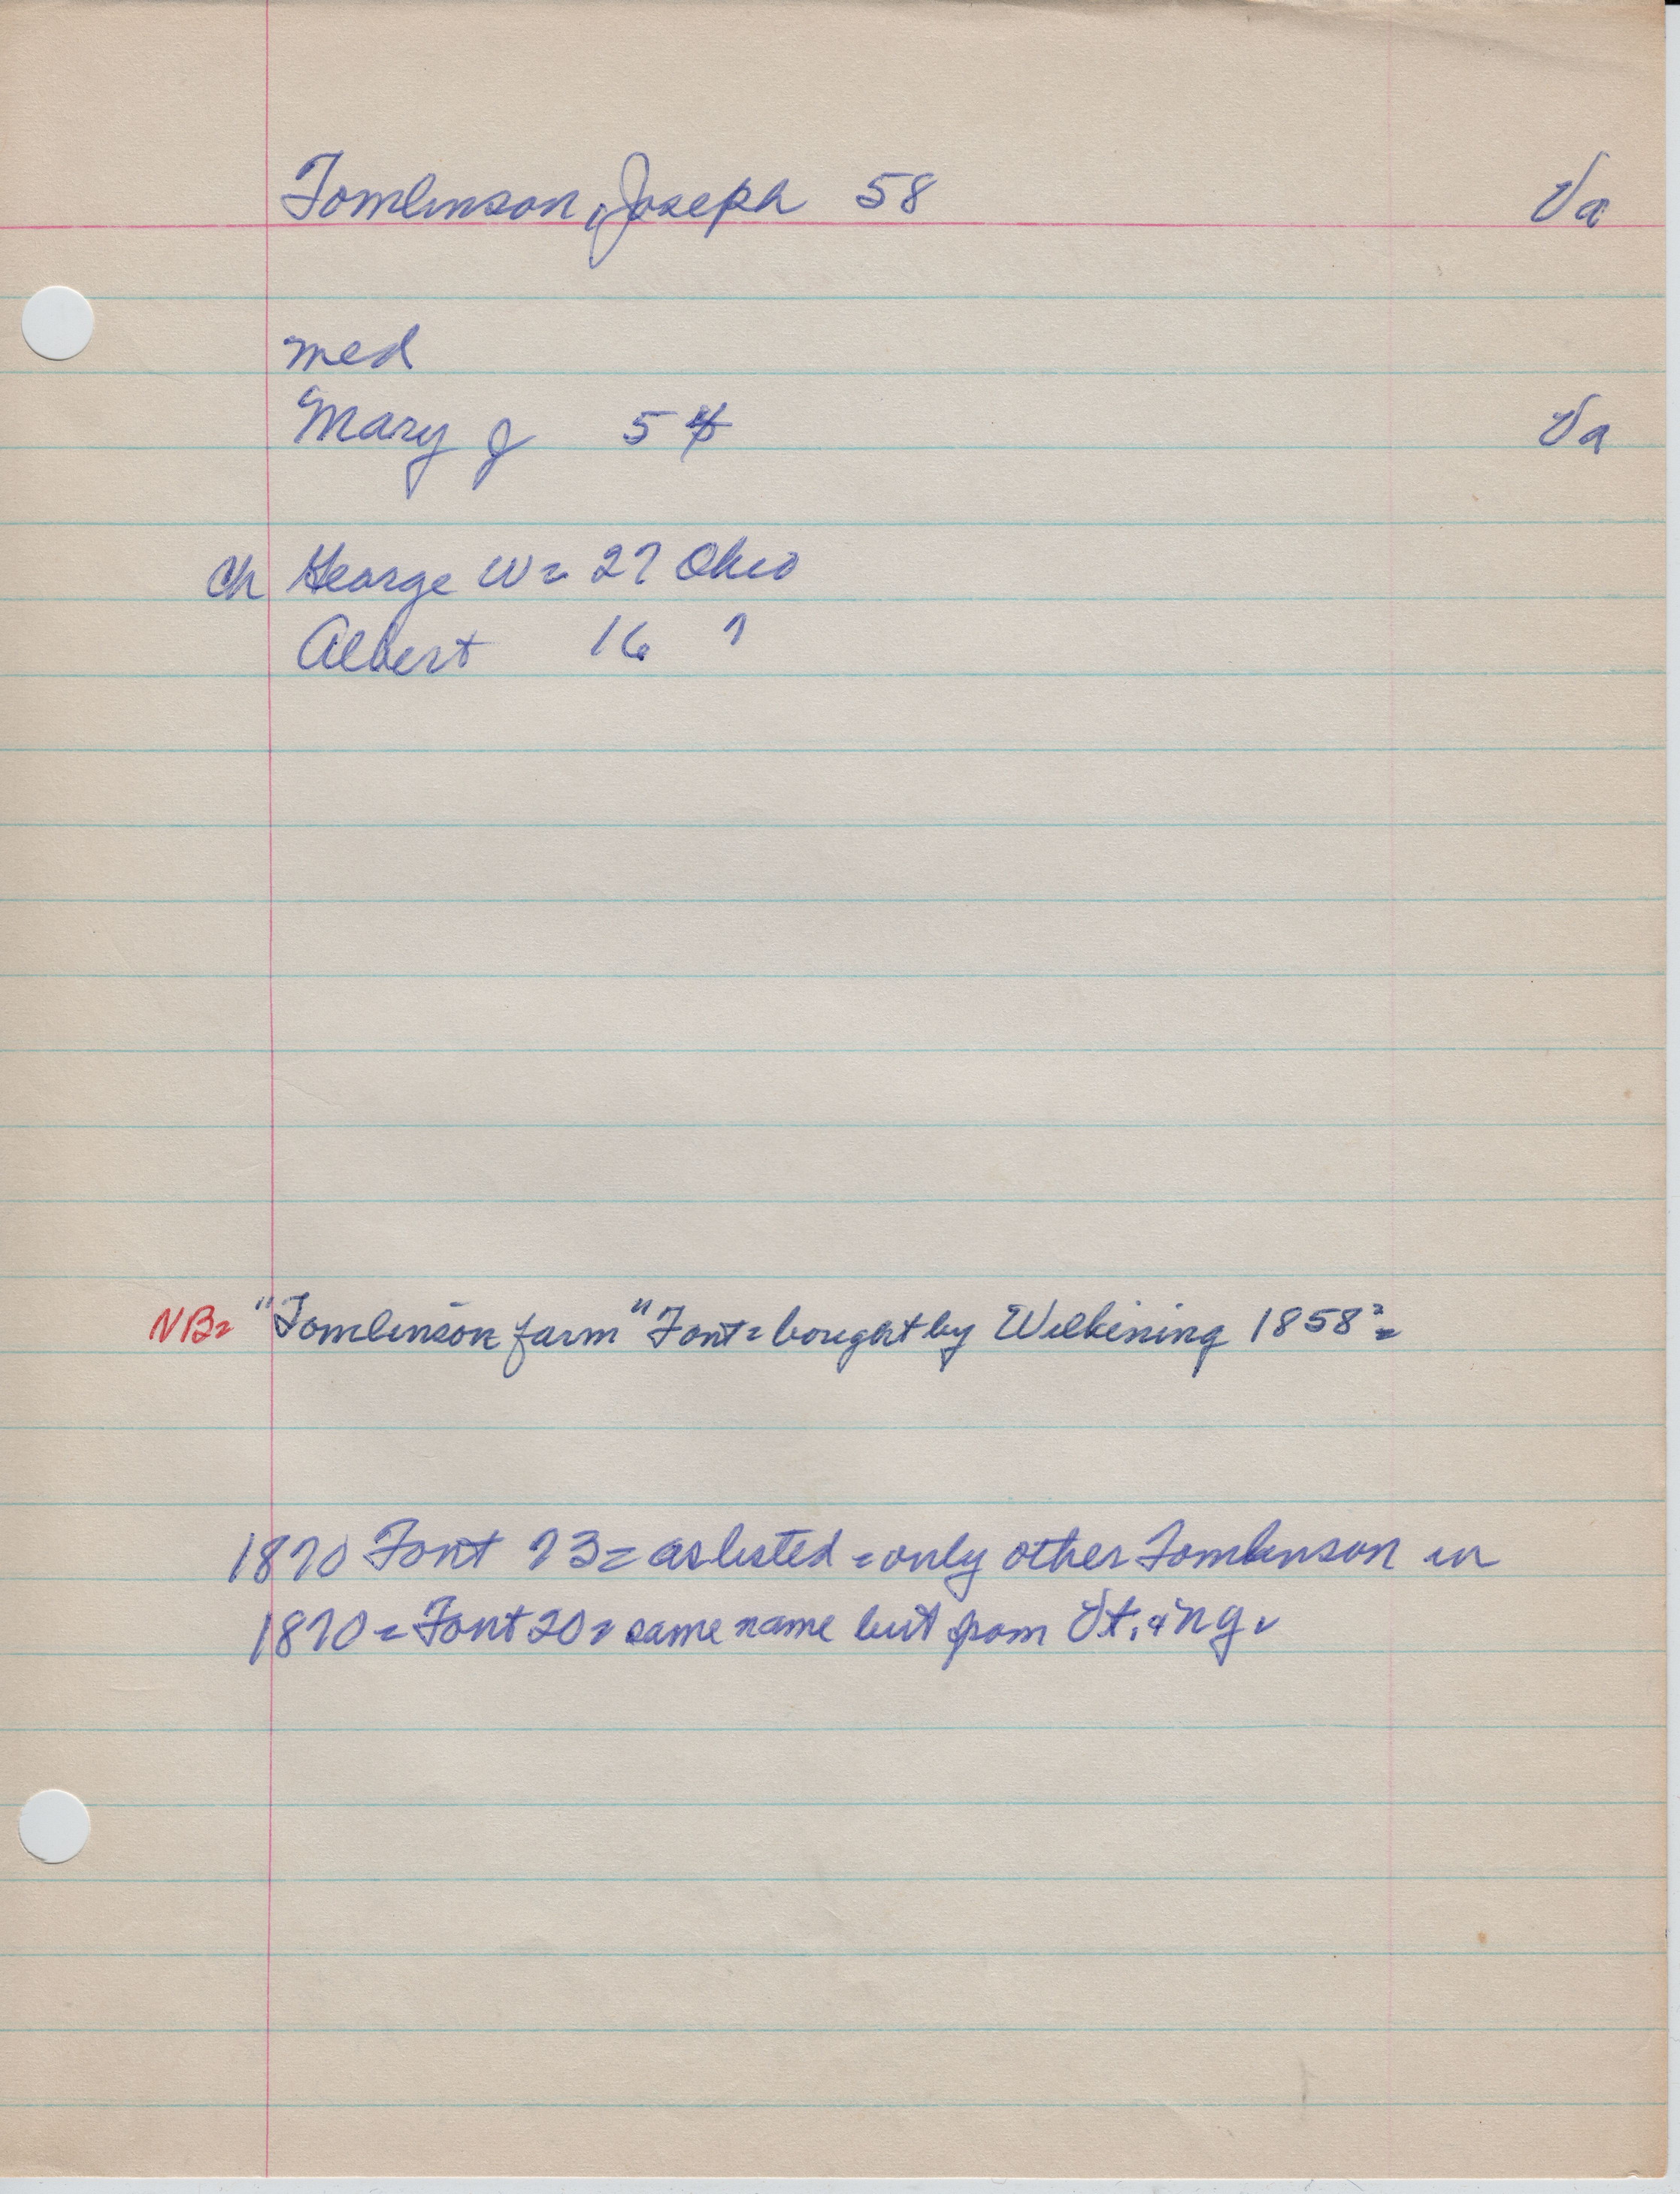 Tomlinson, Joseph 58 Va
med
Mary J 54 Va
Ch George W= 27 Ohio
Albert 16 "
NB= "Tomlinson farm" Font= bought by Wilkening 1858?=
1870 Font 73= as listed = only other Tomlinson in
1870 = Font 20= same name but from Vt. & ng.